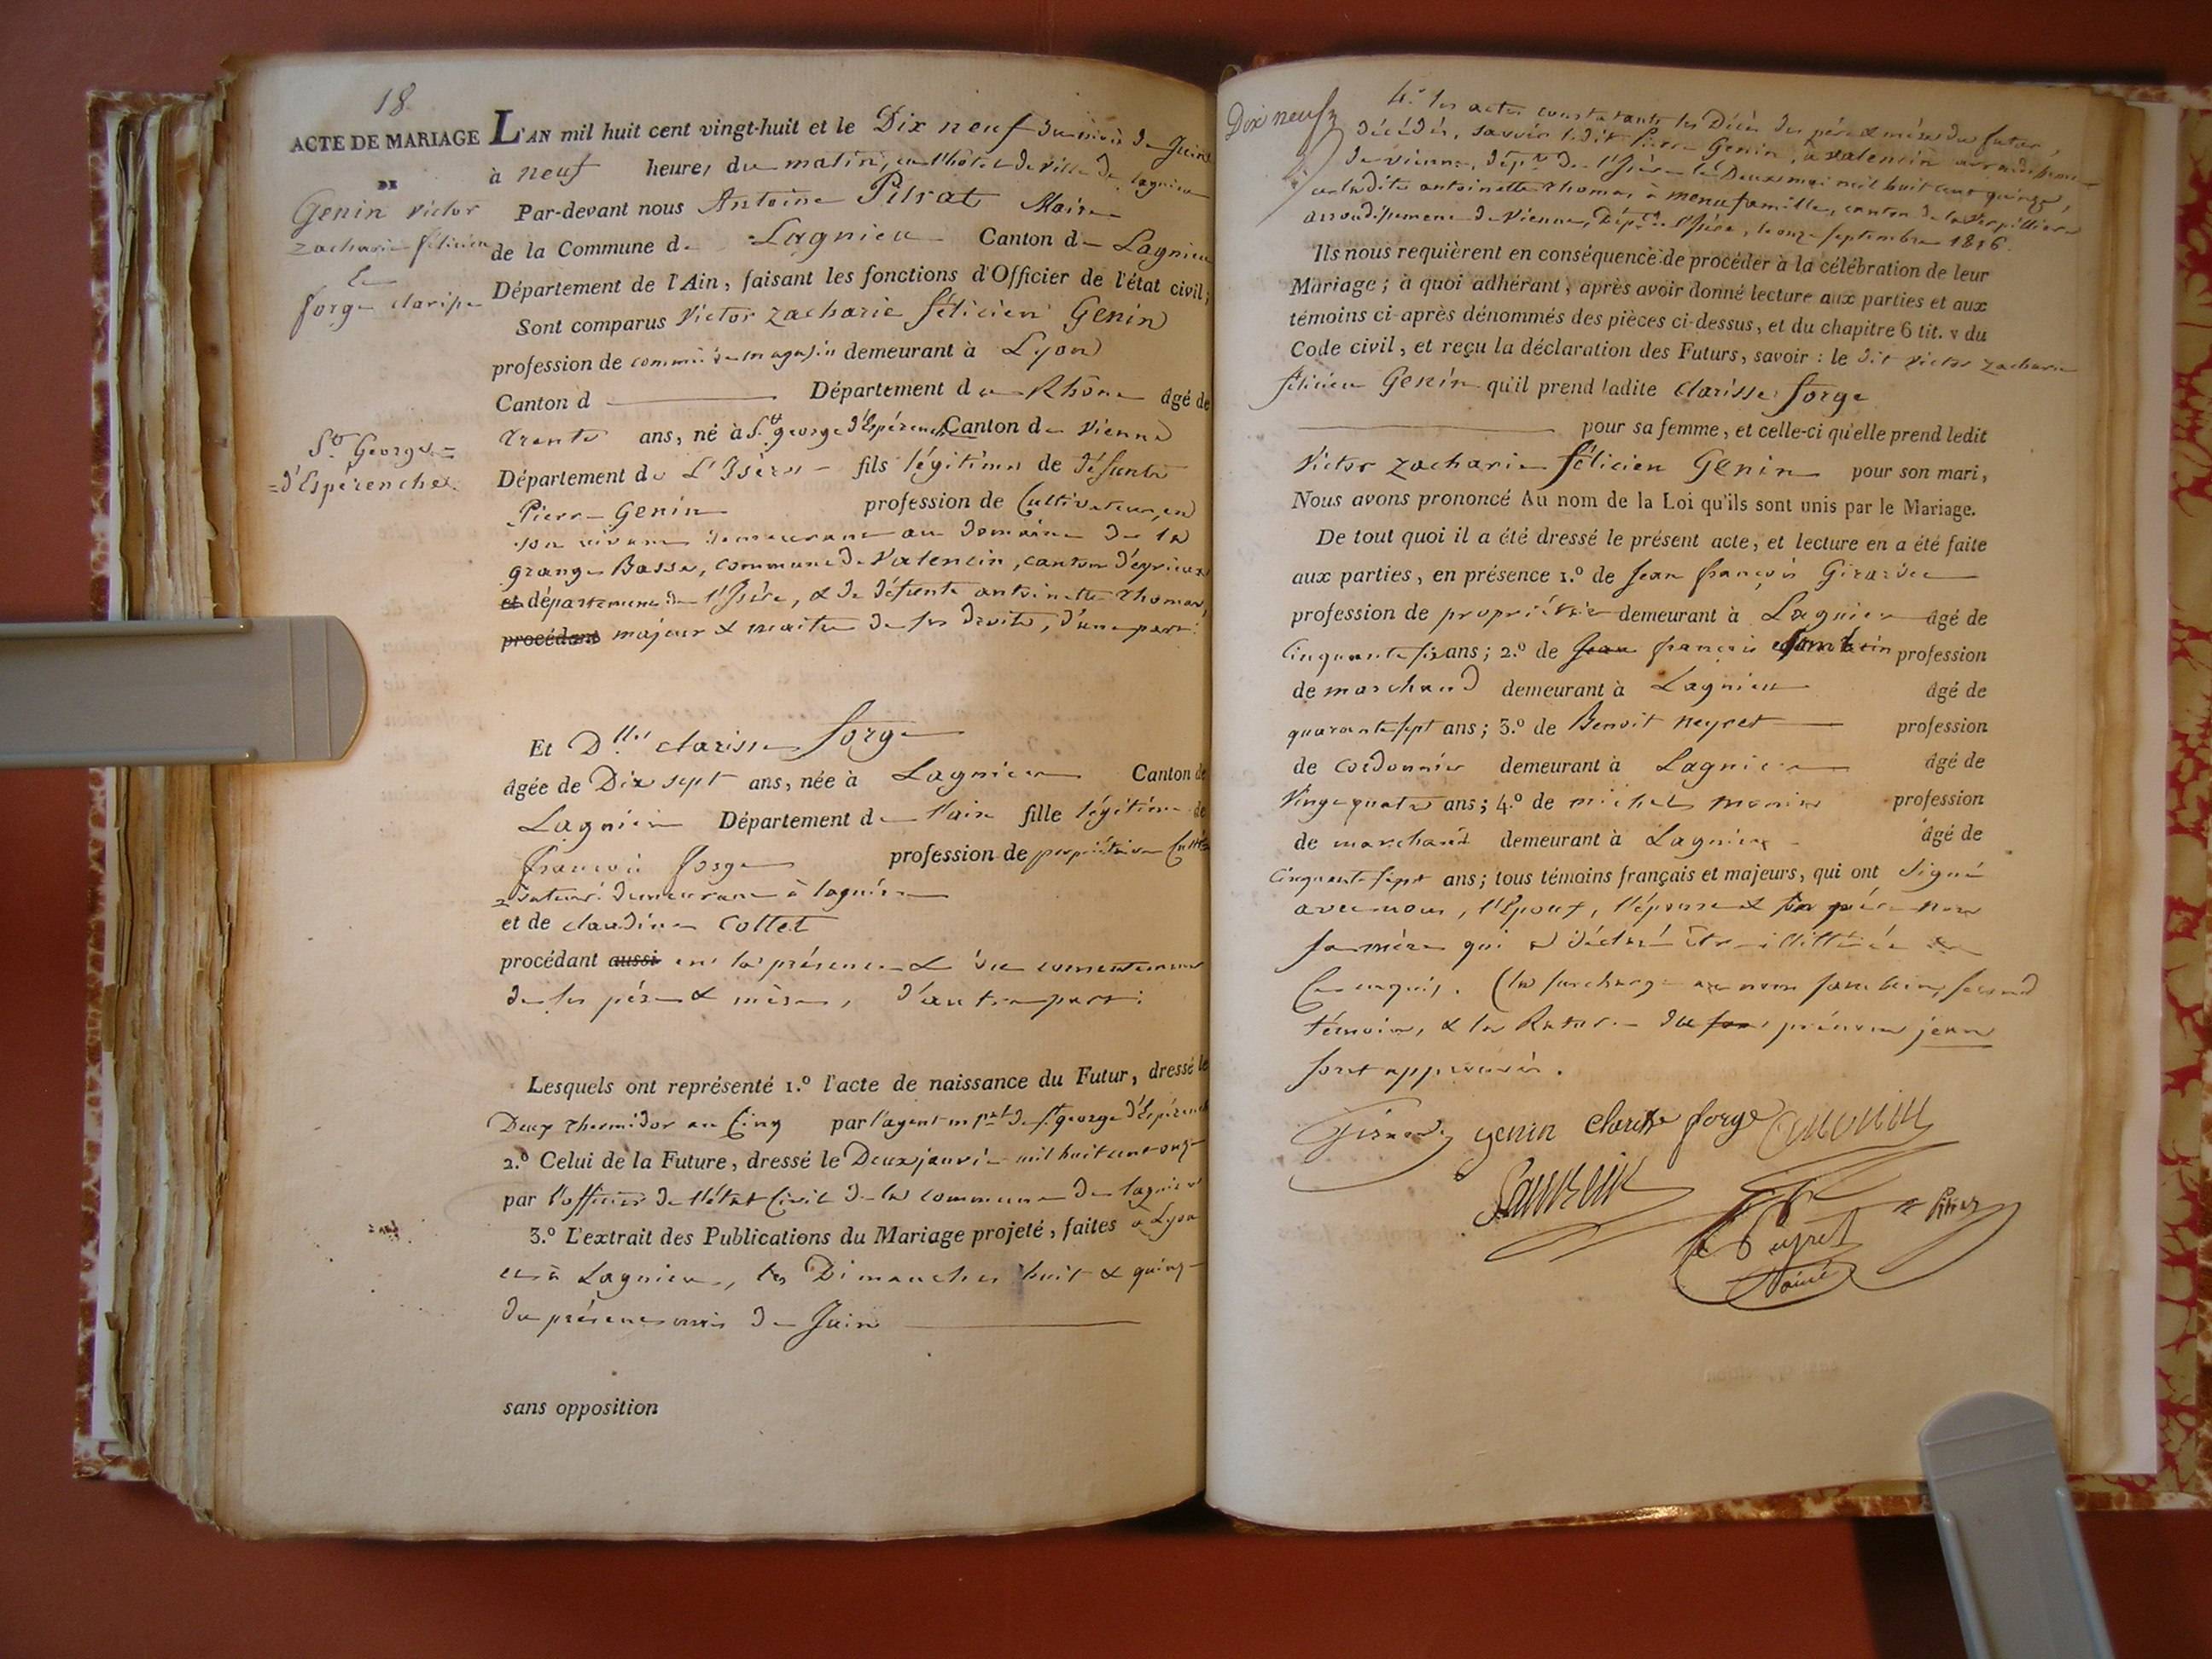 18
ACTE DE MARIAGE
DE
Genin Victor
zacharie félicien
Et
forge clarisse
St. George=
=d'Espérenche.
L'AN mil huit cent vingt-huit et le Dix neuf du mois de Juin
à neuf heures du matin, en l'hôtel de ville de lagnieu
Par-devant nous Antoine Pitrat Maire
de la Commune de Lagnieu Canton de Lagnieu
Département de l'Ain, faisant les fonctions d'Officier de l'état civil;
Sont comparus Victor zacharie félicien Genin
profession de commis de magasin demeurant à Lyon
Canton d Département du Rhône âgé de
trente ans, né à St. george d'Espérenche Canton de Vienne
Département de L'Isère fils légitime de défunts
Pierre Genin profession de Cultivateur, en
son vivant demeurant au domaine de la
grange Basse, commune de Valencin, canton d'eyrieux
et département de l'Isère, & de défunte antoinette thomas,
procédant majeur & maitre de ses droits, d'une part.
Et Dlle clarisse forge
âgée de Dix sept ans, née à Lagnieu Canton de
Lagnieu Département de l'ain fille légitime de
françois forge profession de propriétaire Culti
=vateur demeurant à lagnieu
et de claudine Collet
procédant aussi en la présence & du consentement
de ses père & mère, d'autre part.
Lesquels ont représenté 1.º l'acte de naissance du Futur, dressé le
Deux thermidor an Cinq par l'agent mpal de st. george d'Espérenche
2.º Celui de la Future, dressé le Deux janvier mil huit cent onze
par l'officier de l'état Civil de la commune de lagnieu
3.º L'extrait des Publications du Mariage projeté, faites à Lyon
et à Lagnieu, les Dimanches huit & quinze
du présent mois de Juin
sans opposition
Dix neuf
4.º les actes constatants les Décès des père & mère du futur,
décédés, savoir ledit Pierre Genin, à valencin arrondissement
de vienne, dépt. de l'Isère le Deux mai mil huit cent quinze,
et ladite antoinette thomas, à menufamille, canton de la Verpillière
arrondissement de Vienne, Dépt. de l'Isère, le onze septembre 1816.
Ils nous requièrent en conséquence de procéder à la célébration de leur
Mariage; à quoi adhérant, après avoir donné lecture aux parties et aux
témoins ci-après dénommés des pièces ci-dessus, et du chapitre 6 tit. v du
Code civil, et reçu la déclaration des Futurs, savoir: le dit victor zacharie
félicien Genin qu'il prend ladite clarisse forge
pour sa femme, et celle-ci qu'elle prend ledit
Victor zacharie félicien Genin pour son mari,
Nous avons prononcé Au nom de la Loi qu'ils sont unis par le Mariage.
De tout quoi il a été dressé le présent acte, et lecture en a été faite
aux parties, en présence 1.º de Jean françois
profession de propriétaire demeurant à Lagnieu âgé de
Cinquante six ans; 2.º de Jean françois Jambein profession
de marchand demeurant à Lagnieu âgé de
quarante sept ans; 3.º de Benoit neyret profession
de Cordonnier demeurant à Lagnieu âgé de
Vingt quatre ans; 4.º de michel monin profession
de marchand demeurant à Lagnieu âgé de
Cinquante sept ans; tous témoins français et majeurs, qui ont signé
avec nous, l'Epoux, l'épouse & son père non
sa mère qui a déclaré être illittérée de
Ce enquis. (la surcharge au nom second
témoin, & la Rature du prénom jean
sont approuvés.
genin clarisse forge monin
neyret